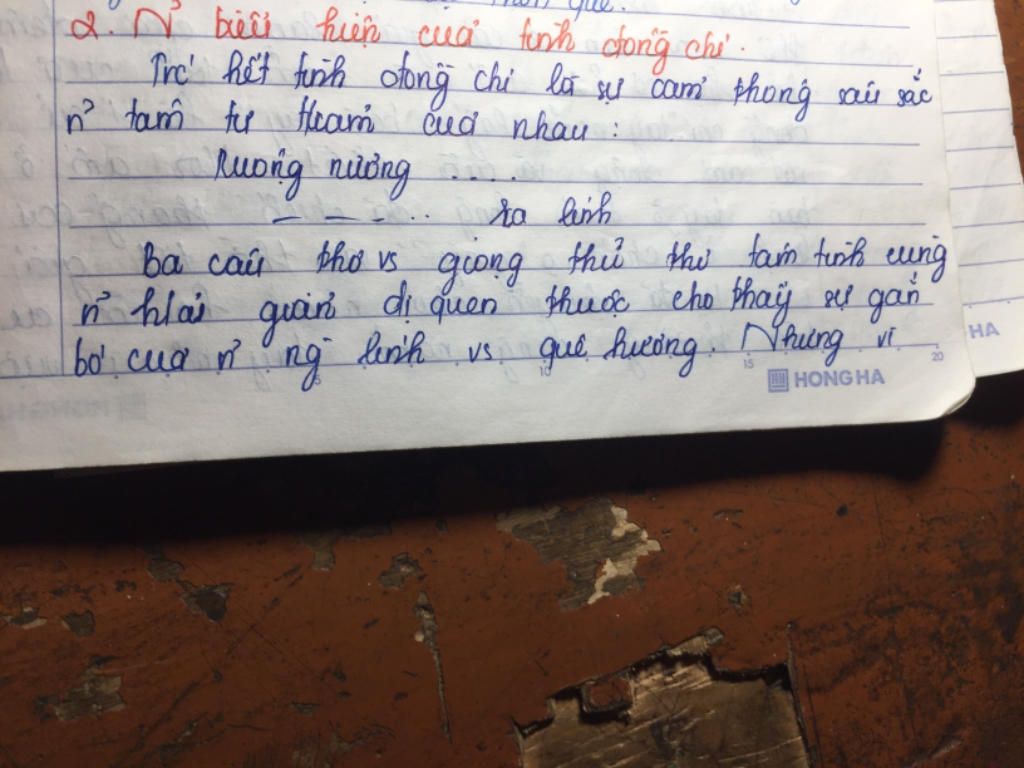 2. N̉ biểu hiện của tình đồng chí.
Trc' hết tình đồng chí là sự cảm thông sâu sắc
n̉ tâm tư thầm của nhau:
Ruộng nương ....
– – – .. ra lính
Ba câu thơ vs giọng thủ thỉ tâm tình cùng
n̉ h/ả giản dị quen thuộc cho thấy sự gắn
bó của n̉ ng lính vs quê hương. Nhưng vì
5 10 15 20
HONG HA
HA